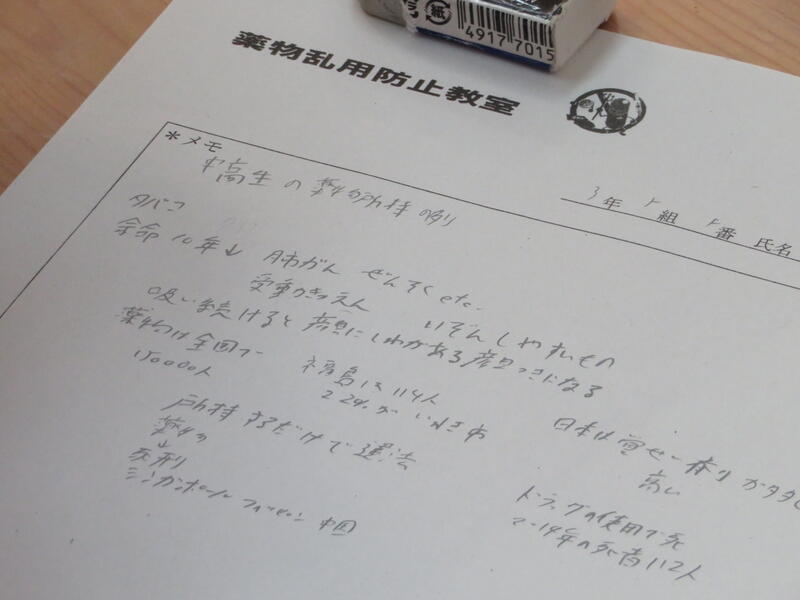 紙
4917 7015
薬物乱用防止教室
*メモ
3年 組 番 氏名
中高生の薬物所持の例
タバコ
余命10年↓ 肺がん ぜんそくetc.
受動きつえん いぞんしやすいもの
吸い続けると顔にしわがある顔つきになる
薬物は全国で
福島は114人
224が いわき市
日本は覚せい剤が
高い
所持するだけで違法
薬物
↓
死刑
シンガポール フィリピン 中国
ドラッグの使用で死
14年の死者112人